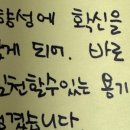 향성에 확신을
게 되어. 바로
실천할수있는 용기
생겼습니다.